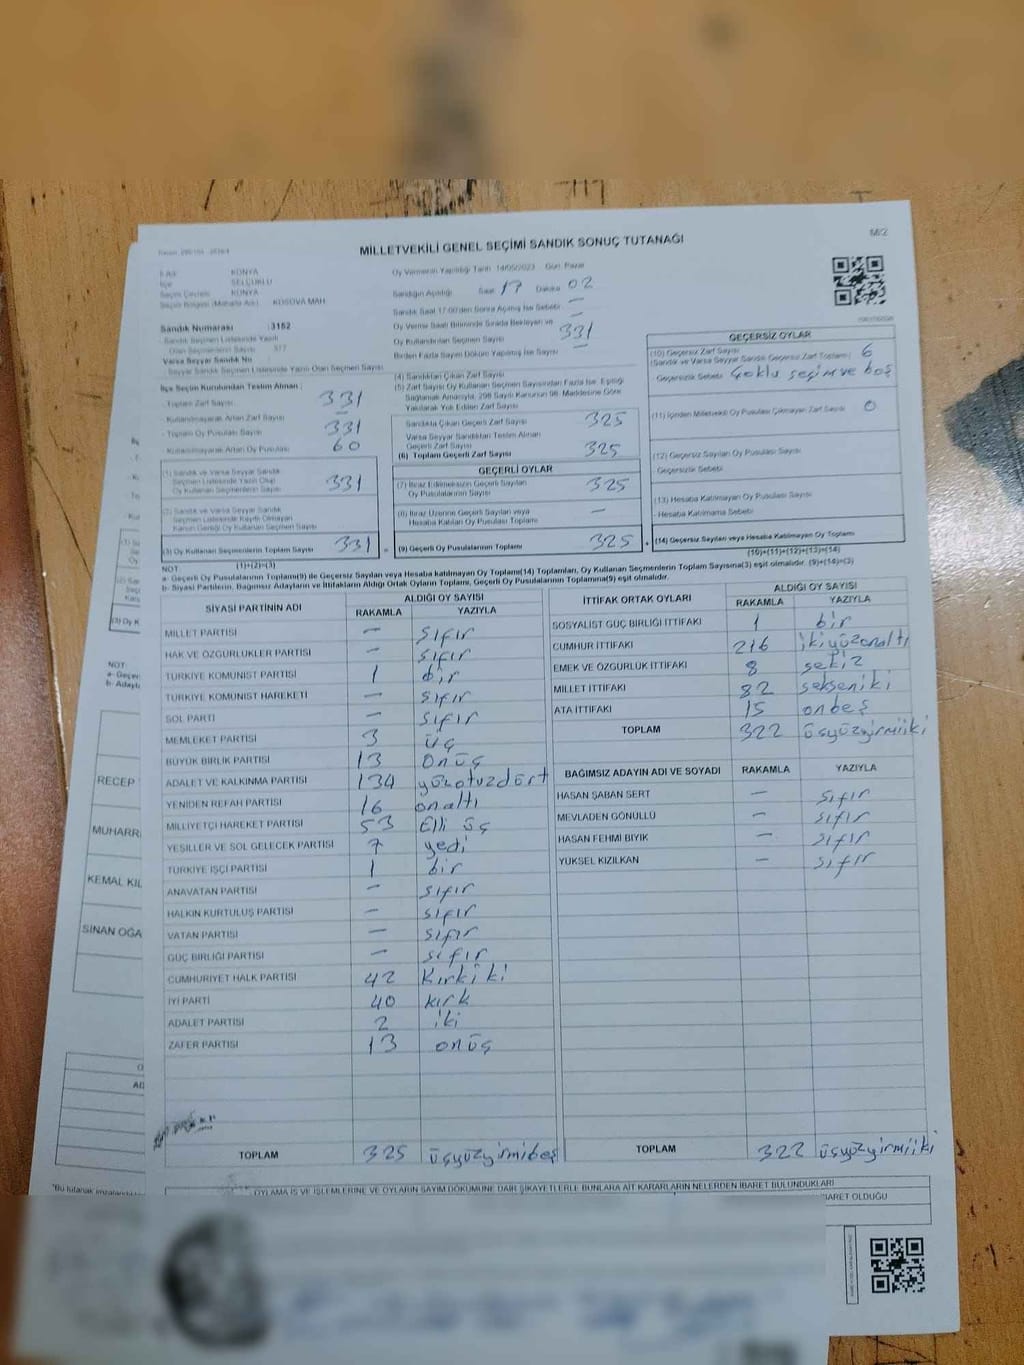 M/2
MİLLETVEKİLİ GENEL SEÇİMİ SANDIK SONUÇ TUTANAĞI
KONYA
İlçe SELÇUKLU
Seçim Çevresi KONYA
KOSOVA MAH
Sandık Numarası : 3152
- Sandık Seçmen Listesinde Yazılı
Olan Seçmenlerin Sayısı 377
Varsa Seyyar Sandık No :
- Seyyar Sandık Seçmen Listesinde Yazılı Olan Seçmen Sayısı
Oy Vermenin Yapıldığı Tarih 14/05/2023 Gün: Pazar
Sandığın Açıldığı Saat 17 Dakika 02
Sandık Saat 17:00'den Sonra Açılmış İse Sebebi —
Oy Verme Saati Bitiminde Sırada Bekleyen ve
Oy Kullandırılan Seçmen Sayısı 331
Birden Fazla Sayım Döküm Yapılmış İse Sayısı —
İlçe Seçim Kurulundan Teslim Alınan ;
- Toplam Zarf Sayısı 331
- Kullanılmayarak Artan Zarf Sayısı —
- Toplam Oy Pusulası Sayısı 331
- Kullanılmayarak Artan Oy Pusulası 60
(1) Sandık ve Varsa Seyyar Sandık
Seçmen Listesinde Yazılı Olup
Oy Kullanan Seçmenlerin Sayısı 331
(2) Sandık ve Varsa Seyyar Sandık
Seçmen Listesinde Kaydı Olmayan
Kanun Gereği Oy Kullanan Seçmen Sayısı
(3) Oy Kullanan Seçmenlerin Toplam Sayısı 331
(1)+(2)=(3)
(4) Sandıktan Çıkan Zarf Sayısı
(5) Zarf Sayısı Oy Kullanan Seçmen Sayısından Fazla İse, Eşitliği
Sağlamak Amacıyla, 298 Sayılı Kanunun 98. Maddesine Göre
Yakılarak Yok Edilen Zarf Sayısı
Sandıkta Çıkan Geçerli Zarf Sayısı 325
Varsa Seyyar Sandıktan Teslim Alınan
Geçerli Zarf Sayısı
(6) Toplam Geçerli Zarf Sayısı 325
GEÇERLİ OYLAR
(7) İtiraz Edilmeksizin Geçerli Sayılan
Oy Pusulalarının Sayısı 325
(8) İtiraz Üzerine Geçerli Sayılan veya
Hesaba Katılan Oy Pusulası Toplamı —
= (9) Geçerli Oy Pusulalarının Toplamı 325
GEÇERSİZ OYLAR
(10) Geçersiz Zarf Sayısı
(Sandık ve Varsa Seyyar Sandık Geçersiz Zarf Toplamı) 6
- Geçersizlik Sebebi Çoklu seçim ve boş
(11) İçinden Milletvekili Oy Pusulası Çıkmayan Zarf Sayısı 0
(12) Geçersiz Sayılan Oy Pusulası Sayısı
- Geçersizlik Sebebi
(13) Hesaba Katılmayan Oy Pusulası Sayısı
- Hesaba Katılmama Sebebi
+ (14) Geçersiz Sayılan veya Hesaba Katılmayan Oy Toplamı
(10)+(11)+(12)+(13)=(14)
NOT
a- Geçerli Oy Pusulalarının Toplamı(9) ile Geçersiz Sayılan veya Hesaba Katılmayan Oy Toplamı(14) Toplamları, Oy Kullanan Seçmenlerin Toplam Sayısına(3) eşit olmalıdır. (9)+(14)=(3)
b- Siyasi Partilerin, Bağımsız Adayların ve İttifakların Aldığı Ortak Oyların Toplamı, Geçerli Oy Pusulalarının Toplamına(9) eşit olmalıdır.
SİYASİ PARTİNİN ADI ALDIĞI OY SAYISI
RAKAMLA YAZIYLA
MİLLET PARTİSİ — sıfır
HAK VE ÖZGÜRLÜKLER PARTİSİ — sıfır
TÜRKİYE KOMÜNİST PARTİSİ 1 bir
TÜRKİYE KOMÜNİST HAREKETİ — sıfır
SOL PARTİ — sıfır
MEMLEKET PARTİSİ 3 üç
BÜYÜK BİRLİK PARTİSİ 13 onüç
ADALET VE KALKINMA PARTİSİ 134 yüzotuzdört
YENİDEN REFAH PARTİSİ 16 onaltı
MİLLİYETÇİ HAREKET PARTİSİ 53 Elli üç
YEŞİLLER VE SOL GELECEK PARTİSİ 7 yedi
TÜRKİYE İŞÇİ PARTİSİ 1 bir
ANAVATAN PARTİSİ — sıfır
HALKIN KURTULUŞ PARTİSİ — sıfır
VATAN PARTİSİ — sıfır
GÜÇ BİRLİĞİ PARTİSİ — sıfır
CUMHURİYET HALK PARTİSİ 42 Kırkiki
İYİ PARTİ 40 kırk
ADALET PARTİSİ 2 iki
ZAFER PARTİSİ 13 onüç
TOPLAM 325 üçyüzyirmibeş
İTTİFAK ORTAK OYLARI ALDIĞI OY SAYISI
RAKAMLA YAZIYLA
SOSYALİST GÜÇ BİRLİĞİ İTTİFAKI 1 bir
CUMHUR İTTİFAKI 216 ikiyüzonaltı
EMEK VE ÖZGÜRLÜK İTTİFAKI 8 sekiz
MİLLET İTTİFAKI 82 sekseniki
ATA İTTİFAKI 15 onbeş
TOPLAM 322 üçyüzyirmiiki
BAĞIMSIZ ADAYIN ADI VE SOYADI RAKAMLA YAZIYLA
HASAN ŞABAN SERT — sıfır
MEVLADEN GÖNÜLLÜ — sıfır
HASAN FEHMİ BIYIK — sıfır
YÜKSEL KIZILKAN — sıfır
TOPLAM 322 üçyüzyirmiiki
OYLAMA İŞ VE İŞLEMLERİNE VE OYLARIN SAYIM DÖKÜMÜNE DAİR ŞİKAYETLERLE BUNLARA AİT KARARLARIN NELERDEN İBARET BULUNDUKLARI
İBARET OLDUĞU
NOT
a- Geçer
b- Adayla
RECEP
MUHARR
KEMAL KIL
SİNAN OĞA